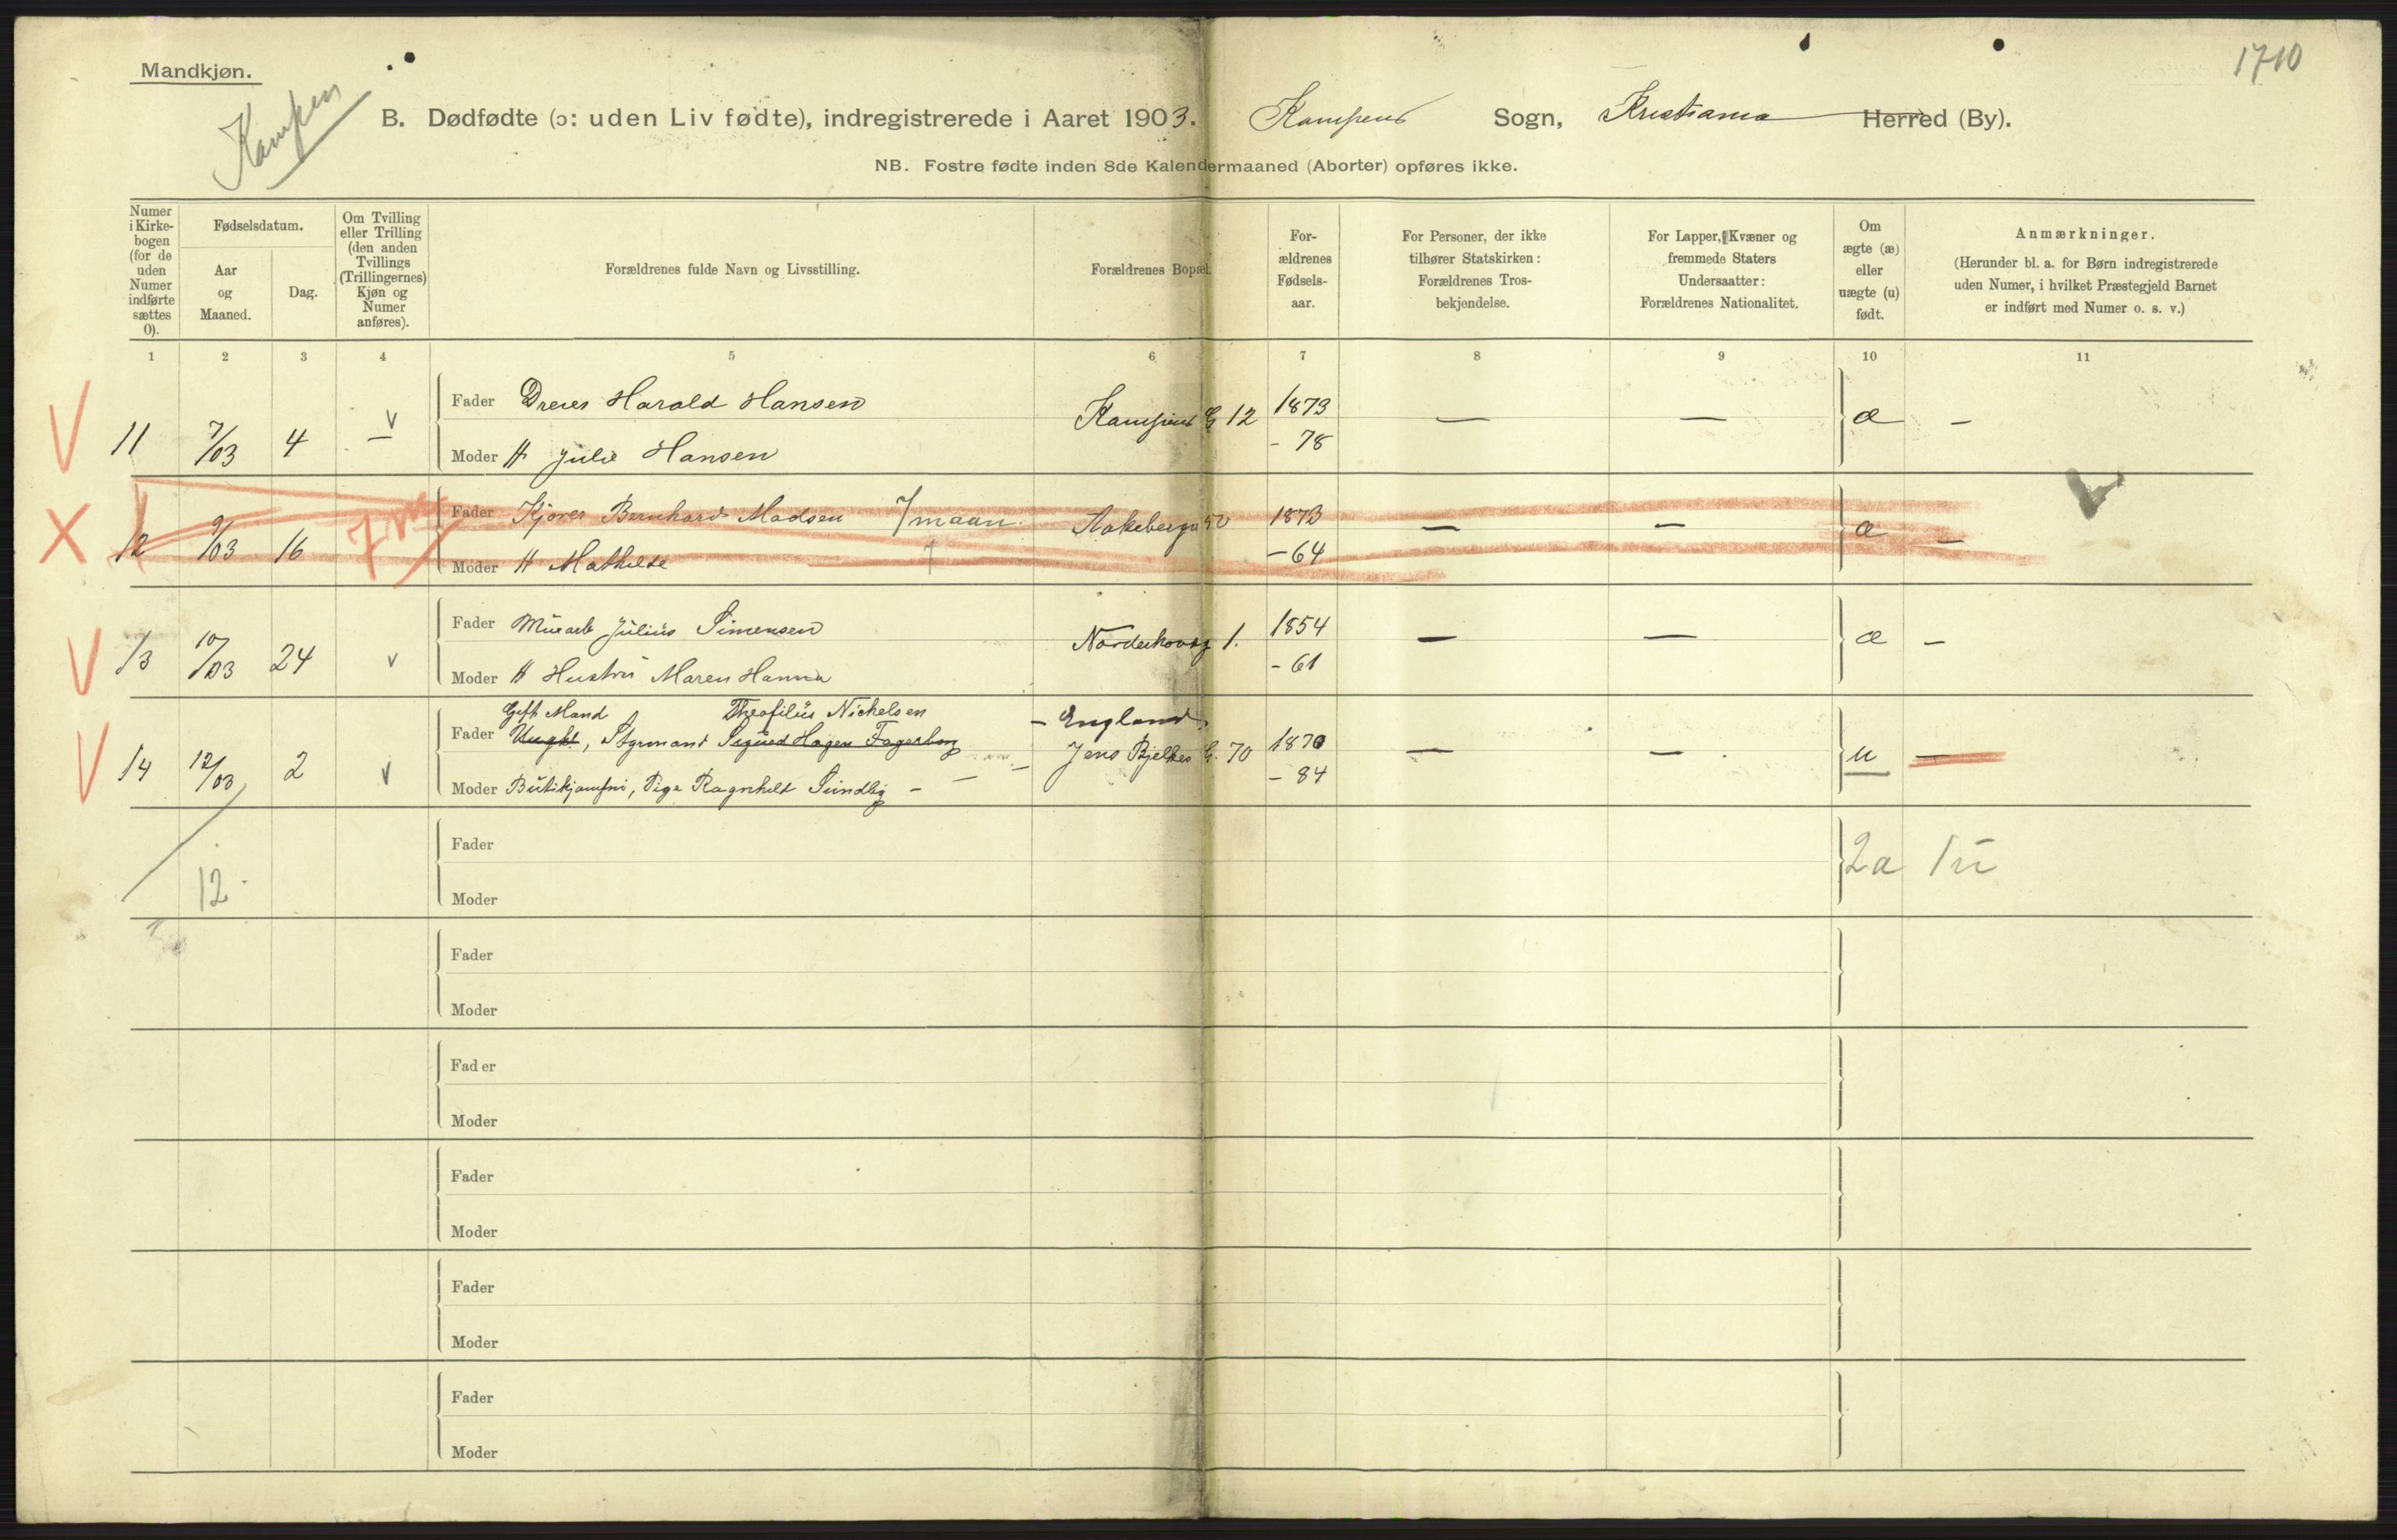 Mandkjøn.
1710
Kampen
B. Dødfødte (ɔ: uden Liv fødte), indregistrerede i Aaret 1903. Kampens Sogn, Kristiania Herred (By).
NB. Fostre fødte inden 8de Kalendermaaned (Aborter) opføres ikke.
Numer i Kirkebogen (for de uden Numer indførte sættes 0).
Fødselsdatum.
Aar og Maaned.
Dag.
Om Tvilling eller Trilling (den anden Tvillings (Trillingernes) Kjøn og Numer anføres).
Forældrenes fulde Navn og Livsstilling.
Forældrenes Bopæl.
For-ældrenes Fødsels-aar.
For Personer, der ikke tilhører Statskirken: Forældrenes Tros-bekjendelse.
For Lapper, Kvæner og fremmede Staters Undersaatter: Forældrenes Nationalitet.
Om ægte (æ) eller uægte (u) født.
Anmærkninger.
(Herunder bl. a. for Børn indregistrerede uden Numer, i hvilket Præstegjeld Barnet er indført med Numer o. s. v.)
1 2 3 4 5 6 7 8 9 10 11
V 11 7/03 4 – V Fader Dreier Harald Hansen Kampens G 12 1873 — — æ –
Moder H Julie Hansen - 78
X 12 9/03 16 7 m Fader Kjører Bernhard Madsen 7 maan. Aakebergv 50 1873 — — æ — V
Moder H Mathilde - 64
V 13 10/03 24 v Fader Murarb Julius Simensen Norderhovsg 1. 1854 — — æ –
Moder H Hustru Maren Hanna - 61
Gift Mand Theofilus Nickelsen – England
V 14 12/03 2 v Fader Ungkl, Styrmand Sigurd Hagen Fagerborg Jens Bjelkes G. 70 1870 — — u —
Moder Butikjomfru, Pige Ragnhild Sundby – - 84
Fader
12 2æ 1u
Moder
Fader
Moder
Fader
Moder
Fader
Moder
Fader
Moder
Fader
Moder